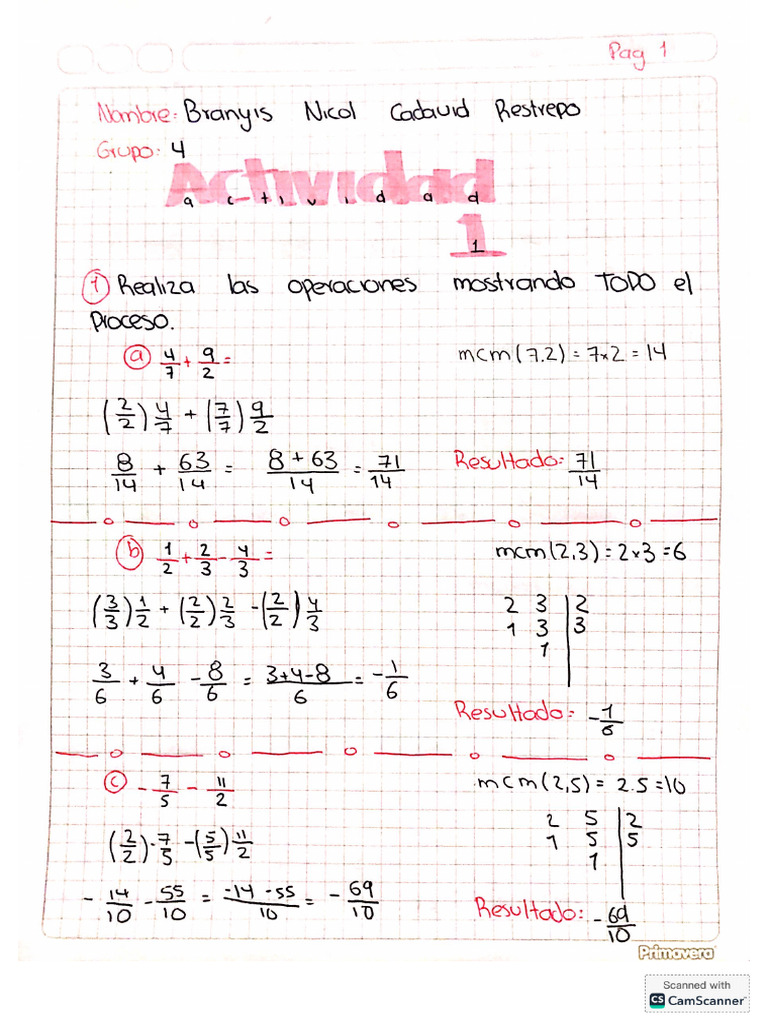 Pag 1
Nombre: Branyis Nicol Cadavid Restrepo
Grupo: 4
Actividad
actividad
1
1
① Realiza las operaciones mostrando TODO el
proceso.
ⓐ 4/7 + 9/2 = mcm(7.2) = 7×2 = 14
(2/2) 4/7 + (7/7) 9/2
8/14 + 63/14 = 8 + 63/14 = 71/14 Resultado: 71/14
ⓑ 1/2 + 2/3 - 4/3 = mcm(2,3) = 2×3 = 6
(3/3) 1/2 + (2/2) 2/3 - (2/2) 4/3
2 3 | 2
1 3 | 3
1 |
3/6 + 4/6 - 8/6 = 3+4-8/6 = -1/6
Resultado: -1/6
ⓒ - 7/5 - 11/2 mcm(2,5) = 2.5 = 10
(2/2) · 7/5 - (5/5) 11/2
2 5 | 2
1 5 | 5
1 |
- 14/10 - 55/10 = -14 -55/10 = - 69/10
Resultado: - 69/10
Primavera
Scanned with
CS CamScanner